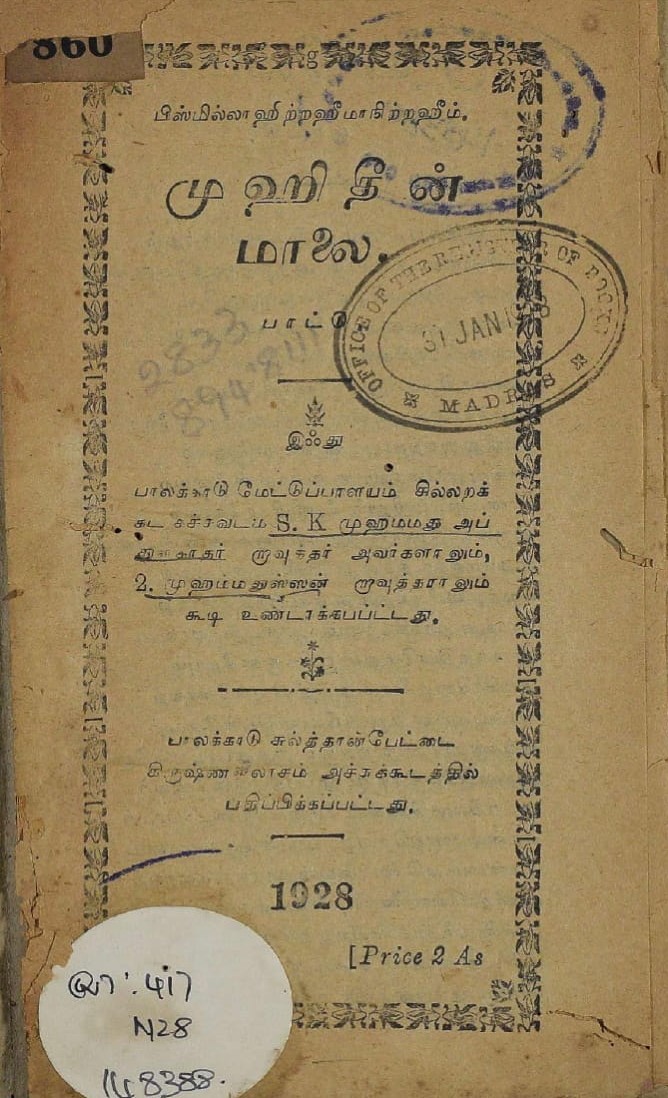 860
பிஸ்மில்லாஹிற்றஹீமானிற்றஹீம்.
முஹிதீன்
மாலை.
பாட்டு
OFFICE OF THE REGISTRAR OF BOOKS
31 JAN
MADRAS
2833
894.811
இஃது
பாலக்காடு மேட்டுப்பாளயம் சில்லறக்
S. K முஹம்மது அப்
றாவுத்தர் அவர்களாலும்,
2. முஹம்மதுஸ்ஸன் றாவுத்தராலும்
கூடி உண்டாக்கபப்ட்டது.
பாலக்காடு சுல்த்தான்பேட்டை
கிருஷ்ணவிலாசம் அச்சுக்கூடத்தில்
பதிப்பிக்கப்பட்டது.
1928
[Price 2 As
417
N28
148388.